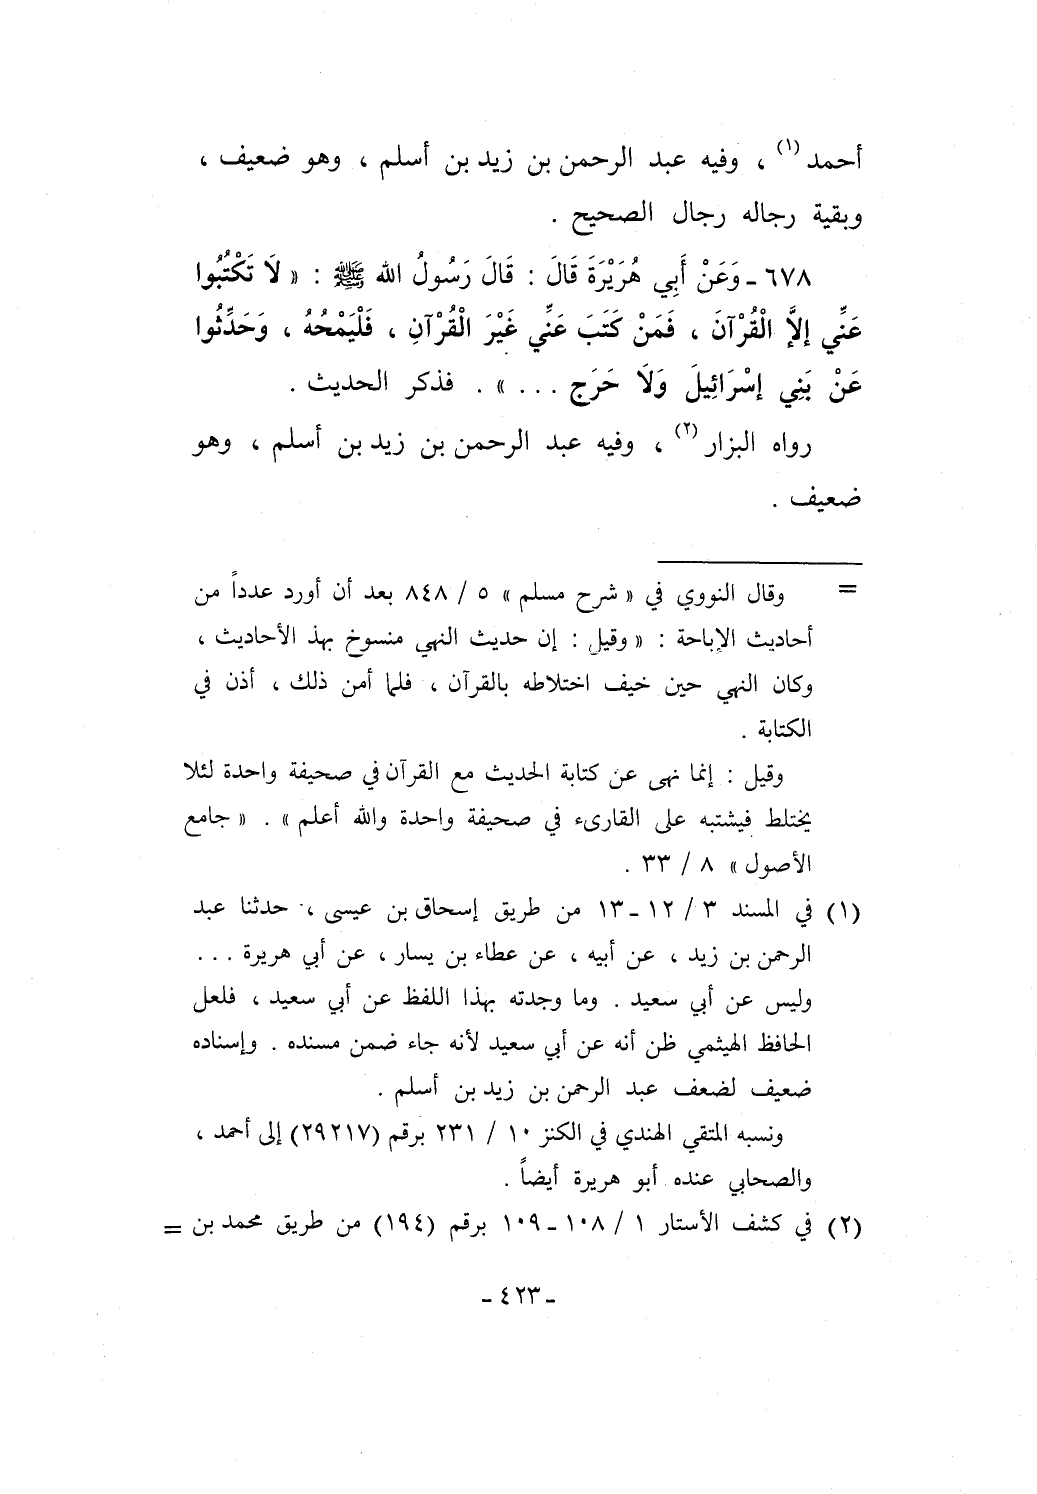 أحمد (١) ، وفيه عبد الرحمن بن زيد بن أسلم ، وهو ضعيف ،
وبقية رجاله رجال الصحيح .
٦٧٨ - وَعَنْ أَبِي هُرَيْرَةَ قَالَ : قَالَ رَسُولُ الله ﷺ : « لَا تَكْتُبُوا
عَنِّي إلاَّ الْقُرْآنَ ، فَمَنْ كَتَبَ عَنِّي غَيْرَ الْقُرْآنِ ، فَلْيَمْحُهُ ، وَحَدِّثُوا
عَنْ بَنِي إسْرَائِيلَ وَلَا حَرَج ... » . فذكر الحديث .
رواه البزار (٢) ، وفيه عبد الرحمن بن زيد بن أسلم ، وهو
ضعيف .
= وقال النووي في « شرح مسلم » ٥ / ٨٤٨ بعد أن أورد عدداً من
أحاديث الإباحة : « وقيل : إن حديث النهي منسوخ بهذ الأحاديث ،
وكان النهي حين خيف اختلاطه بالقرآن ، فلما أمن ذلك ، أذن في
الكتابة .
وقيل : إنما نهى عن كتابة الحديث مع القرآن في صحيفة واحدة لئلا
يختلط فيشتبه على القارىء في صحيفة واحدة والله أعلم » . « جامع
الأصول » ٨ / ٣٣ .
(١) في المسند ٣ / ١٢ - ١٣ من طريق إسحاق بن عيسى ، حدثنا عبد
الرحمن بن زيد ، عن أبيه ، عن عطاء بن يسار ، عن أبي هريرة ...
وليس عن أبي سعيد . وما وجدته بهذا اللفظ عن أبي سعيد ، فلعل
الحافظ الهيثمي ظن أنه عن أبي سعيد لأنه جاء ضمن مسنده . وإسناده
ضعيف لضعف عبد الرحمن بن زيد بن أسلم .
ونسبه المتقي الهندي في الكنز ١٠ / ٢٣١ برقم (٢٩٢١٧) إلى أحمد ،
والصحابي عنده أبو هريرة أيضاً .
(٢) في كشف الأستار ١ / ١٠٨ - ١٠٩ برقم (١٩٤) من طريق محمد بن =
- ٤٢٣ -